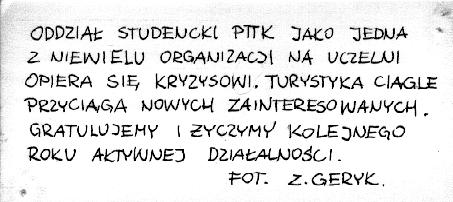 ODDZIAŁ STUDENCKI PTTK JAKO JEDNA
Z NIEWIELU ORGANIZACJI NA UCZELNI
OPIERA SIĘ KRYZYSOWI. TURYSTYKA CIĄGLE
PRZYCIĄGA NOWYCH ZAINTERESOWANYCH.
GRATULUJEMY I ŻYCZYMY KOLEJNEGO
ROKU AKTYWNEJ DZIAŁALNOŚCI.
FOT. Z. GERYK.